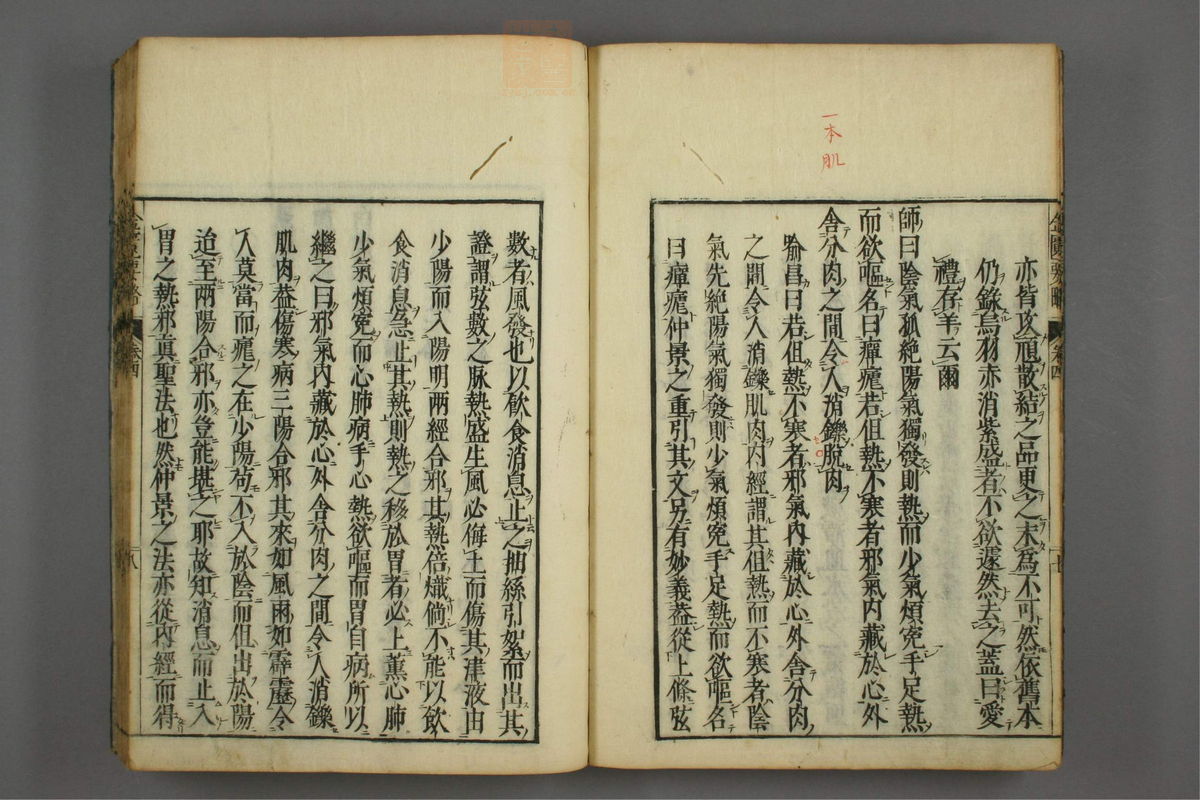 一本肌
亦皆攻頑散結之品更之末為不可然依舊本
仍錄烏羽亦消紫盛者不欲遽然去之蓋曰愛
禮存羊云爾
師曰陰氣孤絶陽氣獨發則熱而少氣煩寃手足熱
而欲嘔名曰癉瘧若但熱不寒者邪氣内藏於心外
舎分肉之間令人消鑠脫肉
喻昌曰若但熱不寒者邪氣内藏於心外舎分肉
之間令人消鑠肌肉内經謂其但熱而不寒者陰
氣先絶陽氣獨發則少氣煩寃手足熱而欲嘔名
曰癉瘧仲景之重引其文另有妙義蓋從上條弦
數者風發也以飲食消息止之抽絲引絮而出其
證謂弦數之脉熱盛生風必侮土而傷其津液由
少陽而入陽明兩經合邪其熱倍熾倘不能以飲
食消息急止其熱則熱之移於胃者必上薰心肺
少氣煩寃而心肺病手心熱欲嘔而胃自病所以
繼之曰邪氣内藏於心外舎分肉之間令人消鑠
肌肉蓋傷寒病三陽合邪其來如風雨如霹靂令
人莫當而瘧之在少陽苟不入於陰而但出於陽
迫至兩陽合邪亦豈能堪之耶故知消息而止入
胃之熱邪真聖法也然仲景之法亦從内經而得